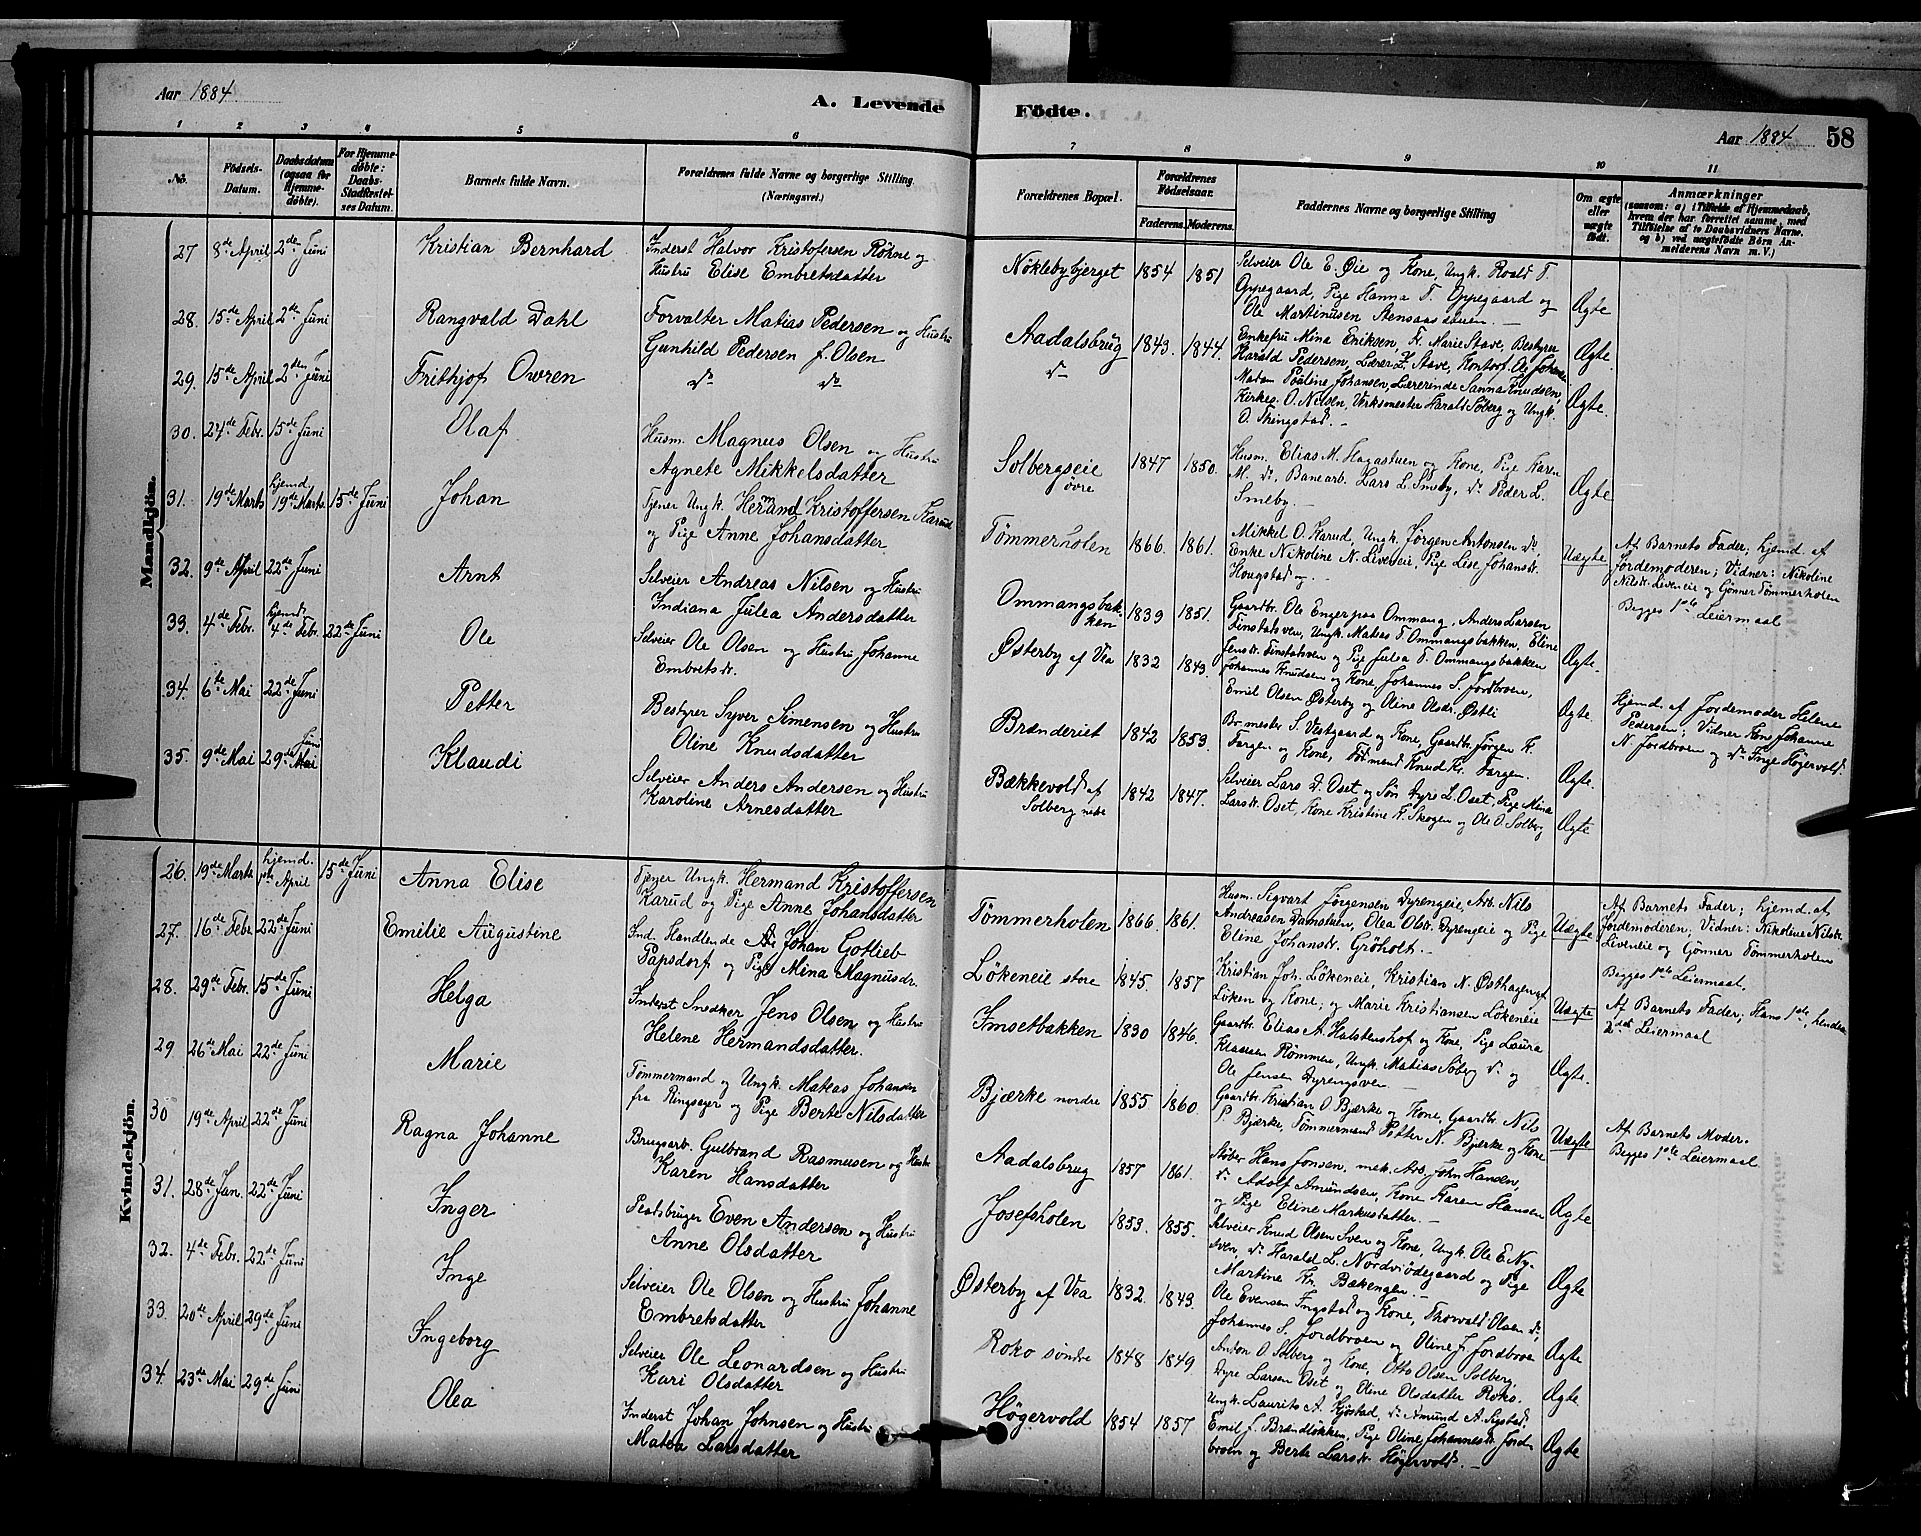 Aar 1884.
A. Levende Fødte.
Aar 1884. 58
1 2 3 4 5 6 7 8 9 10 11
No.
Fødsels-Datum.
Daabsdatum (ogsaa for Hjemmedøbte).
For Hjemmedøbte: Daabs-Stadfæstelses Datum.
Barnets fulde Navn.
Forældrenes fulde Navne og borgerlige Stilling (Næringsvei.)
Forældrenes Bopæl.
Forældrenes Fødselsaar.
Faderens. Moderens.
Faddernes Navne og borgerlige Stilling
Om ægte eller uægte født.
Anmærkninger
(saasom: a) i Tilfælde af Hjemmedaab, hvem der har forrettet samme, med Tilføielse af to Daabsvidners Navne, og b) ved uægtefødte Børn Anmelderens Navn m. V.)
Mandkjön.
27 8de April 2den Juni Kristian Bernhard
Inderst Halvor Kristofersen Röhne og
Hustru Elise Embretsdatter
Nöklebybjerget 1854 1851
Selveier Ole E. Øie og Kone, Ungk. Roald T.
Oppegaard, Pige Hanna T. Oppegaard og
Ole Martinusen Stensaasstuen. —
Ægte
28. 15de April 2den Juni Rangvald Dahl
Forvalter Matias Pedersen og Hustru
Gunhild Pedersen f. Olsen
Aadalsbrug 1843. 1844.
Enkefru Mina Eriksen, Fr. Marie Stave, Bestyrer
Harald Pedersen, Lærer Z. Stave, Kontorf. Ole Johansen
Ægte.
29. 15de April 2den Juni Frithjof Owren
do do
do
Madam Pauline Johansen, Lærerinde Sanna Knudsen,
Kirkes. O. Nilsen, Værksmester Harald Söberg og Ungk.
O. Thingstad. —
Ægte.
30. 24de Febr. 15de Juni Olaf
Husm. Magnus Olsen og Hustru
Agnete Mikkelsdatter
Solbergseie øvre 1847 1850.
Husm. Elias M. Hagastuen og Kone, Pige Karen
M. do, Banearb. Lars L. Smeby, do Peder L.
Smeby. —
Ægte
31. 19de Marts hjemd. 19de Marts 15de Juni Johan
Tjener Ungk. Hermand Kristoffersen Karud
og Pige Anne Johansdatter
Tömmerholen 1866. 1861.
Mikkel O. Karud, Ungk. Jörgen Antonsen do,
Enke Nikoline N. Liveneie, Pige Lise Johansdr.
Hougstad og. —
Uægte
Af Barnets Fader; hjemd. af
Jordemoderen; Vidner: Nikoline
Nilsdr. Liveneie og Gönner Tömmerholen
Begges 1ste Leiermaal
32. 9de April 22de Juni Arnt
Selveier Andreas Nilsen og Hustru
Indiana Julea Andersdatter
Ommangsbakken 1839 1851.
Gaardbr. Ole Enger paa Ommang, Anders Larsen
Finstadsven, Ungk. Matias T. Ommangsbakken, Eline
Jensdr. Finstadsven og Pige Julea T. Ommangsbakken
Ægte.
33. 4de Febr. hjemd. 4de Febr. 22de Juni Ole
Selveier Ole Olsen og Hustru Johanne
Embretsdr.
Østerby af Vea 1832 1843.
Johannes Knudsen og Kone, Johannes S. Jordbroen,
Emil Olsen Østerby og Oline Olsdr. Østli
Ægte
Hjemd. af Jordemoder Helene
Pedersen; Vidner Kone Johanne
N. Jordbroen og do Inge Högervold.
34. 6te Mai 22de Juni Petter
Bestyrer Syver Simensen og Hustru
Oline Knudsdatter
Brænderiet 1842 1853.
Br.mester S. Vestgaard og Kone, Gaardbr. Jörgen K.
Fargen og Kone, Formand Knud Kr. Fargen.
Ægte.
35. 9de Mai 29de Juni Mai Klaudi
Selveier Anders Andersen og Hustru
Karoline Arnesdatter
Bækkevold af Solberg nedre 1842 1847.
Selveier Lars D. Oset og Sön Dyre L. Oset, Pige Mina
Larsdr. Oset, Kone Kristine K. Skogen og Ole O. Solberg
Ægte
Kvindekjön.
26. 19de Marts hjemd. April 15de Juni Anna Elise
Tjener Ungk. Hermand Kristoffersen
Karud og Pige Anne Johansdatter
Tömmerholen 1866. 1861.
Husm. Sigvart Jörgensen Dyrengeie, Arb. Nils
Andreasen Damstuen, Olea Olsdr. Dyrengeie og Pige
Eline Johansdr. Gröholt. —
Uægte
Af Barnets Fader; hjemd. af
Jordemoderen, Vidner: Nikoline Nilsdr.
Liveneie og Gönner Tömmerholen
Begges 1ste Leiermaal.
27. 16de Febr. 22de Juni Emilie Augustine
Ind. Handlende Johan Gotlieb
Papsdorf og Pige Mina Magnusdr.
Lökeneie store 1845. 1857
Kristian Joh. Lökeneie, Kristian N. Østhagen af
Löken og Kone; og Marie Kristiansen Lökeneie
Uægte
Af Barnets Fader; Hans 1ste, hendes
2det Leiermaal
28. 29de Febr. 15de Juni Helga
Inderst Snedker Jens Olsen og Hustru
Helene Hermandsdatter.
Imsetbakken 1830 1846.
Gaardbr. Elias A. Halstenshof og Kone, Pige Laura
Klausen Römmen, Ungk. Matias Söberg do og
Ole Jensen Dyrengsven —
Ægte.
29 26de Mai 22de Juni Marie
Tömmermand og Ungk. Mateas Johansen
fra Ringsager og Pige Berte Nilsdatter
Bjærke nordre 1855 1860
Gaardbr. Kristian O. Bjærke og Kone, Gaardbr. Nils
P. Bjærke, Tömmermand Petter N. Bjærke og Kone
Uægte
Af Barnets Moder.
Begges 1ste Leiermaal
30 19de April 22de Juni Ragna Johanne
Brugsarb. Gulbrand Rasmusen og Hustru
Karen Hansdatter
Aadalsbrug 1857 1861.
Stöber Hans Jonsen, mek. Arb. John Hansen,
do Adolf Amundsen, Kone Karen Hansen
og Pige Eline Markusdatter. —
Ægte
31. 28de Jan. 22de Juni Inger
Pladsbruger Even Andersen og Hustru
Anne Olsdatter
Josefsholen 1853. 1855.
Selveier Knud Olsen Sven og Kone, Ungk. Ole E. Nysven, do Harald L. Nordviödegaard og Pige
Martine Kr. Bækengen. —
Ægte
32. 4de Febr. 22de Juni Inge
Selveier Ole Olsen og Hustru Johanne
Embretsdatter
Østerby af Vea 1832. 1843.
Ole Evensen Ingstad og Kone, Thorvald Olsen do,
Johannes S. Jordbroen og Oline J. Jordbroen
Ægte
33. 20de April 29de Juni Ingeborg
Selveier Ole Leonardsen og Hustru
Kari Olsdatter
Roko söndre 1848 1849.
Anton O. Solberg og Kone, Otto Olsen Solberg,
Dyre Larsen Oset og Oline Olsdatter Roko.
Ægte
34. 23de Mai 29de Juni Olea
Inderst Johan Johnsen og Hustru
Matea Larsdatter
Högervold 1854 1857
Ungk. Laurits A. Kjöstad, do Amund A. Sigstad,
Emil J. Brændlökken, Pige Oline Johannesdr. Jordbroen og Berte Larsdr. Högervold. —
Ægte